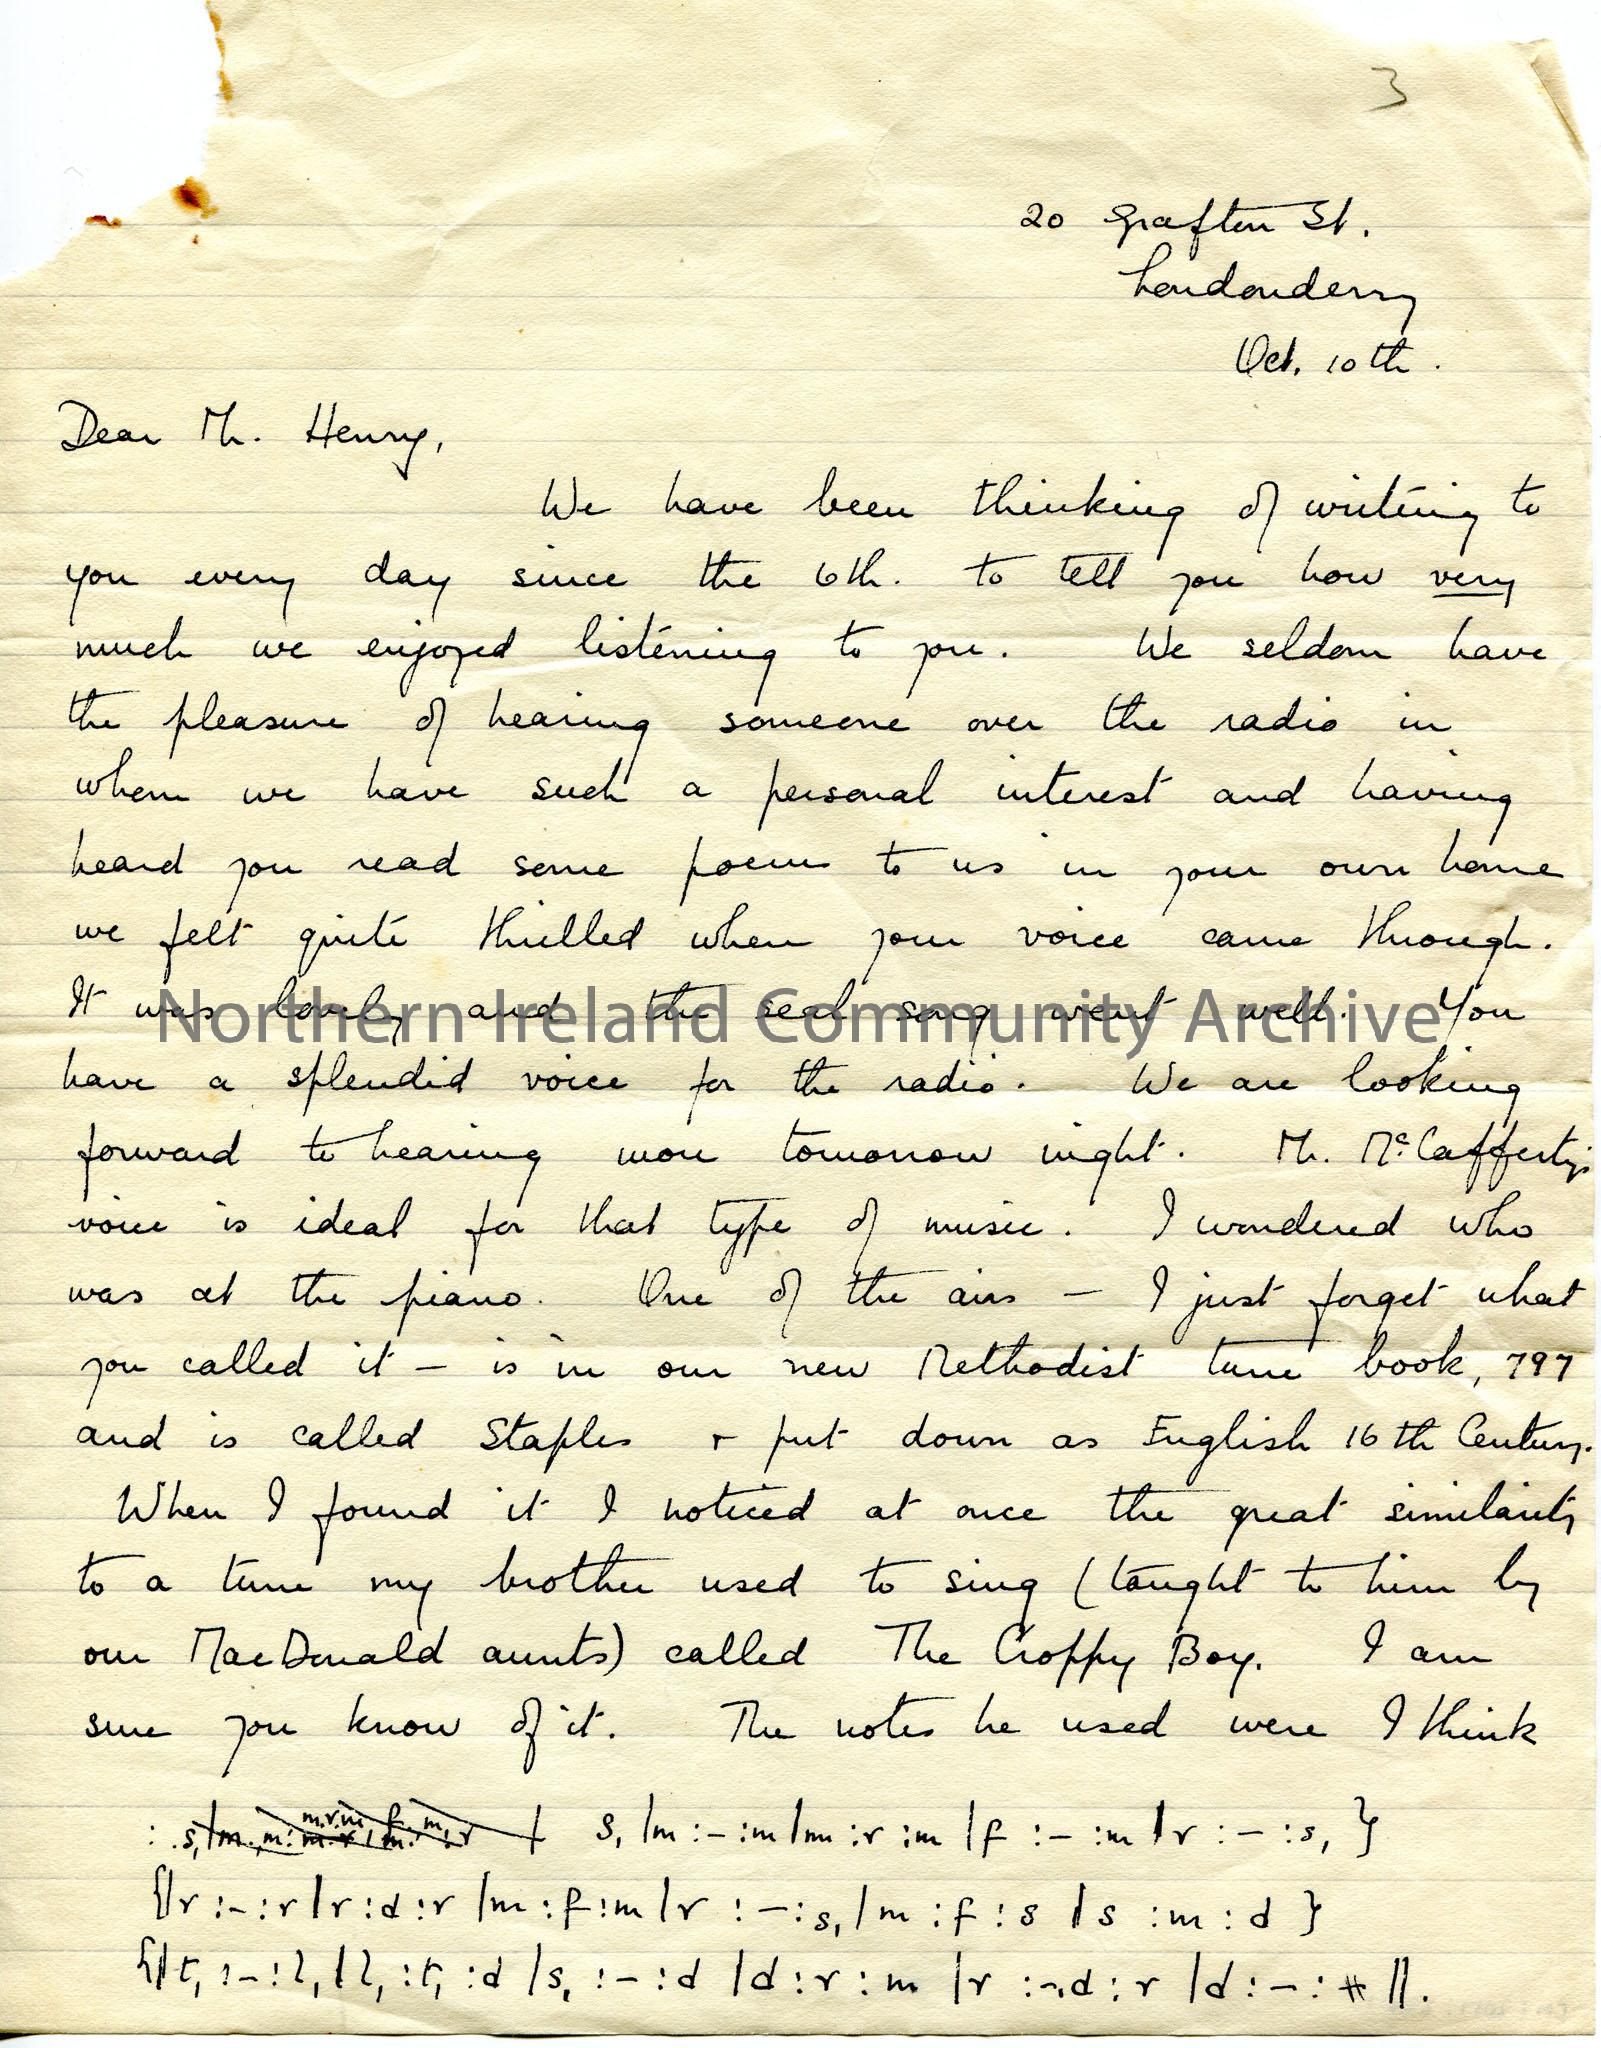 3
20 Grafton St.
Londonderry
Oct. 10th.
Dear Mr. Henry,
We have been thinking of writing to
you every day since the 6th. to tell you how very
much we enjoyed listening to you. We seldom have
the pleasure of hearing someone over the radio in
whom we have such a personal interest and having
heard you read some poems to us in your own home
we felt quite thrilled when your voice came through.
It was lovely and the seal song went well. You
Northern Ireland Community Archive
have a splendid voice for the radio. We are looking
forward to hearing more tomorrow night. Mr. McCafferty's
voice is ideal for that type of music. I wondered who
was at the piano. One of the airs – I just forget what
you called it – is in our new Methodist tune book, 797
and is called Staples + put down as English 16th Century.
When I found it I noticed at once the great similarity
to a tune my brother used to sing (taught to him by
our MacDonald aunts) called The Croppy Boy. I am
sure you know of it. The notes he used were I think
s, |m :– :m |m :r :m |f :– :m |r :– :s, }
{|r :– :r |r :d :r |m :f :m |r :– :s, |m :f :s |s :m :d }
{|t, :– :l, |l, :t, :d |s, :– :d |d :r :m |r :-,d :r |d :– : # ||.